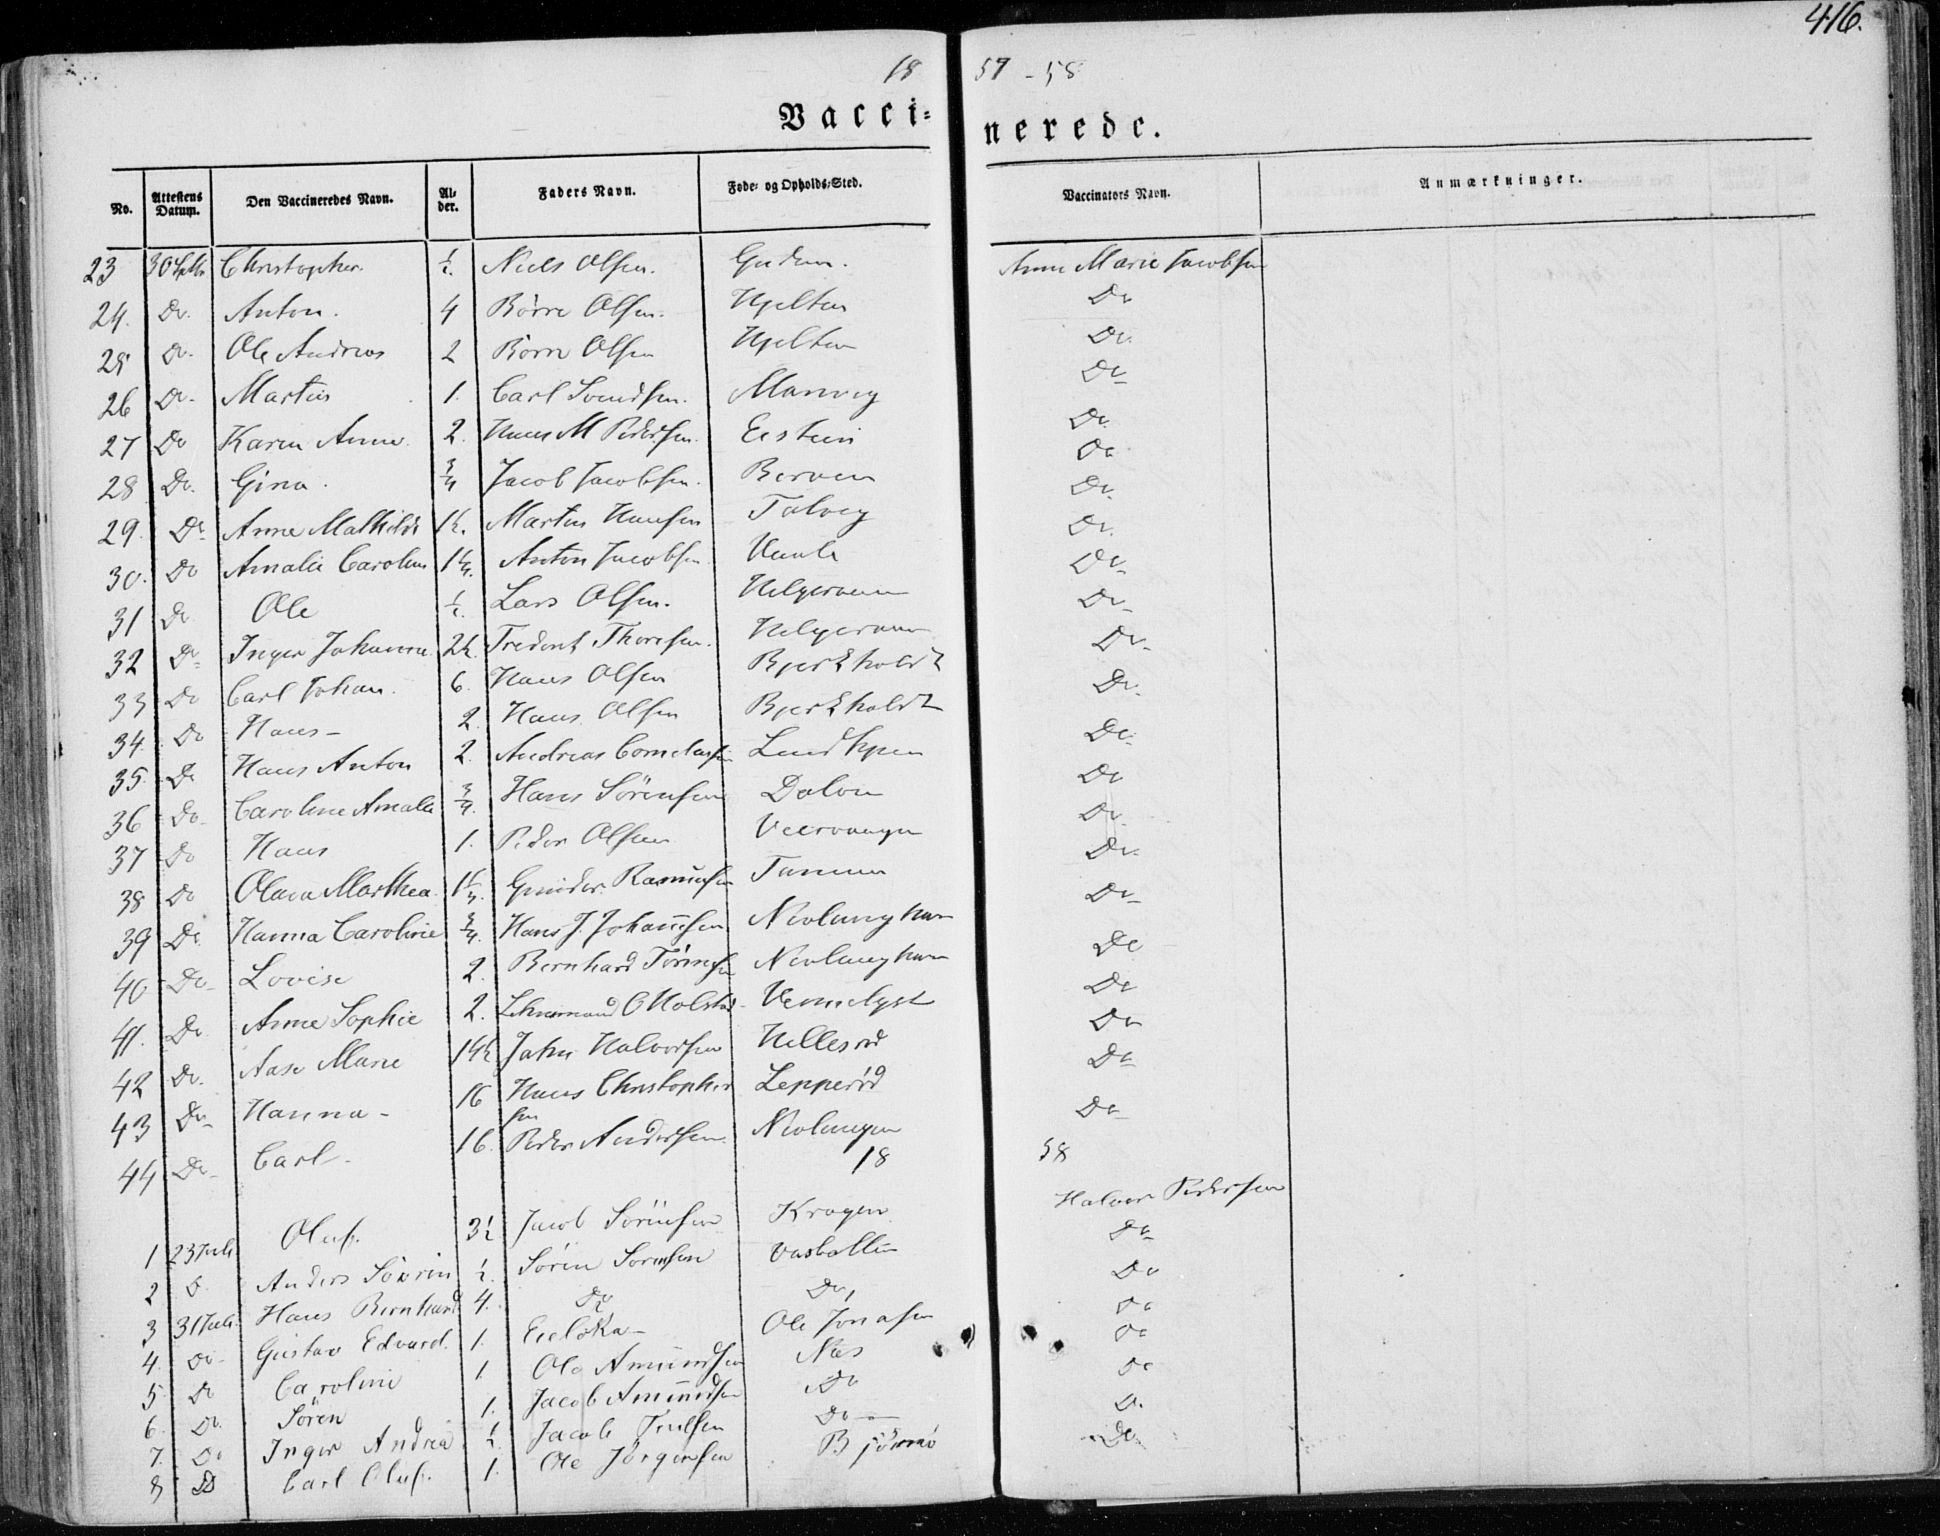 416.
18 57-58
Vacci- nerede.
No. Attestens Datum. Den Vaccineredes Navn. Alder. Faders Navn. Føde- og Opholds-Sted. Vaccinators Navn. Anmærkninger.
23 30 Septbr Christopher. ½ Niels Olsen. Gudem. Anne Marie Jacobsen
24. Do. Anton. 4 Börre Olsen. Hjelten Do
25 Do. Ole Andreas 2 Börre Olsen Hjelten Do.
26 Do. Martin 1. Carl Svendsen. Manvig Do
27 Do Karen Anne. 2. Hans M Pedersen. Eistein Do.
28 Do. Gina. ¾ Jacob Jacobsen. Berven Do
29. Do Anne Mathilde 1½. Martin Hansen Talvig Do.
30. Do Amalie Caroline 1¼. Anton Jacobsen Do.
31 Do Ole ½. Lars Olsen. Helgeroen Do
32 Do Inger Johanna 2½. Thoresen. Helgeroen Do
33 Do Carl Johan. 6. Hans Olsen Bjerkholdt Do.
34 Do Hans- 2. Hans Olsen Bjerkholdt Do.
35. Do Hans Anton 2. Andreas Corneliussen Do
36 Do. Caroline Amalie ¾. Hans Sörensen Dalen Do
37 Do Hans 1. Peder Olsen Do.
38 Do Olava Marthea. Gunder Rasmusen Tanum Do.
39 Do. Hanna Caroline ¾. Hans J. Johannsen Nevlunghavn Do
40 Do- Lovise 2. Bernhard Nevlunghavn Do
41. Do Anne Sophie 2. O Holsted Vemmelyst Do
42 Do. Aase Marie 14½ John Halvorsen Hellesrød Do
43 Do- Hanna- 16 Hans Christophersen Lepperöd Do
44 Do- Carl. 16. Peder Andersen Nevlungen Do
18 58
1 23 Juli Oluf. 3½ Jacob Sörensen Krogen Halvor Pedersen
2 D. Anders Sörin ½. Sörin Sörensen Vasbotten Do
3 31 Juli. Hans Bernhard 4. Do Do, Do
4. Do- Gustav Edvard. 1. Eieloka- Ole Jonasen Do
5. Do Caroline 1 Ole Amundsen Næs Do
6. Do. Sören 1. Jacob Amundsen Do Do
7. Do Inger Andrea ½. Jacob Do- D.
8 D Carl Oluf. 1. Ole Jörgensen Do.